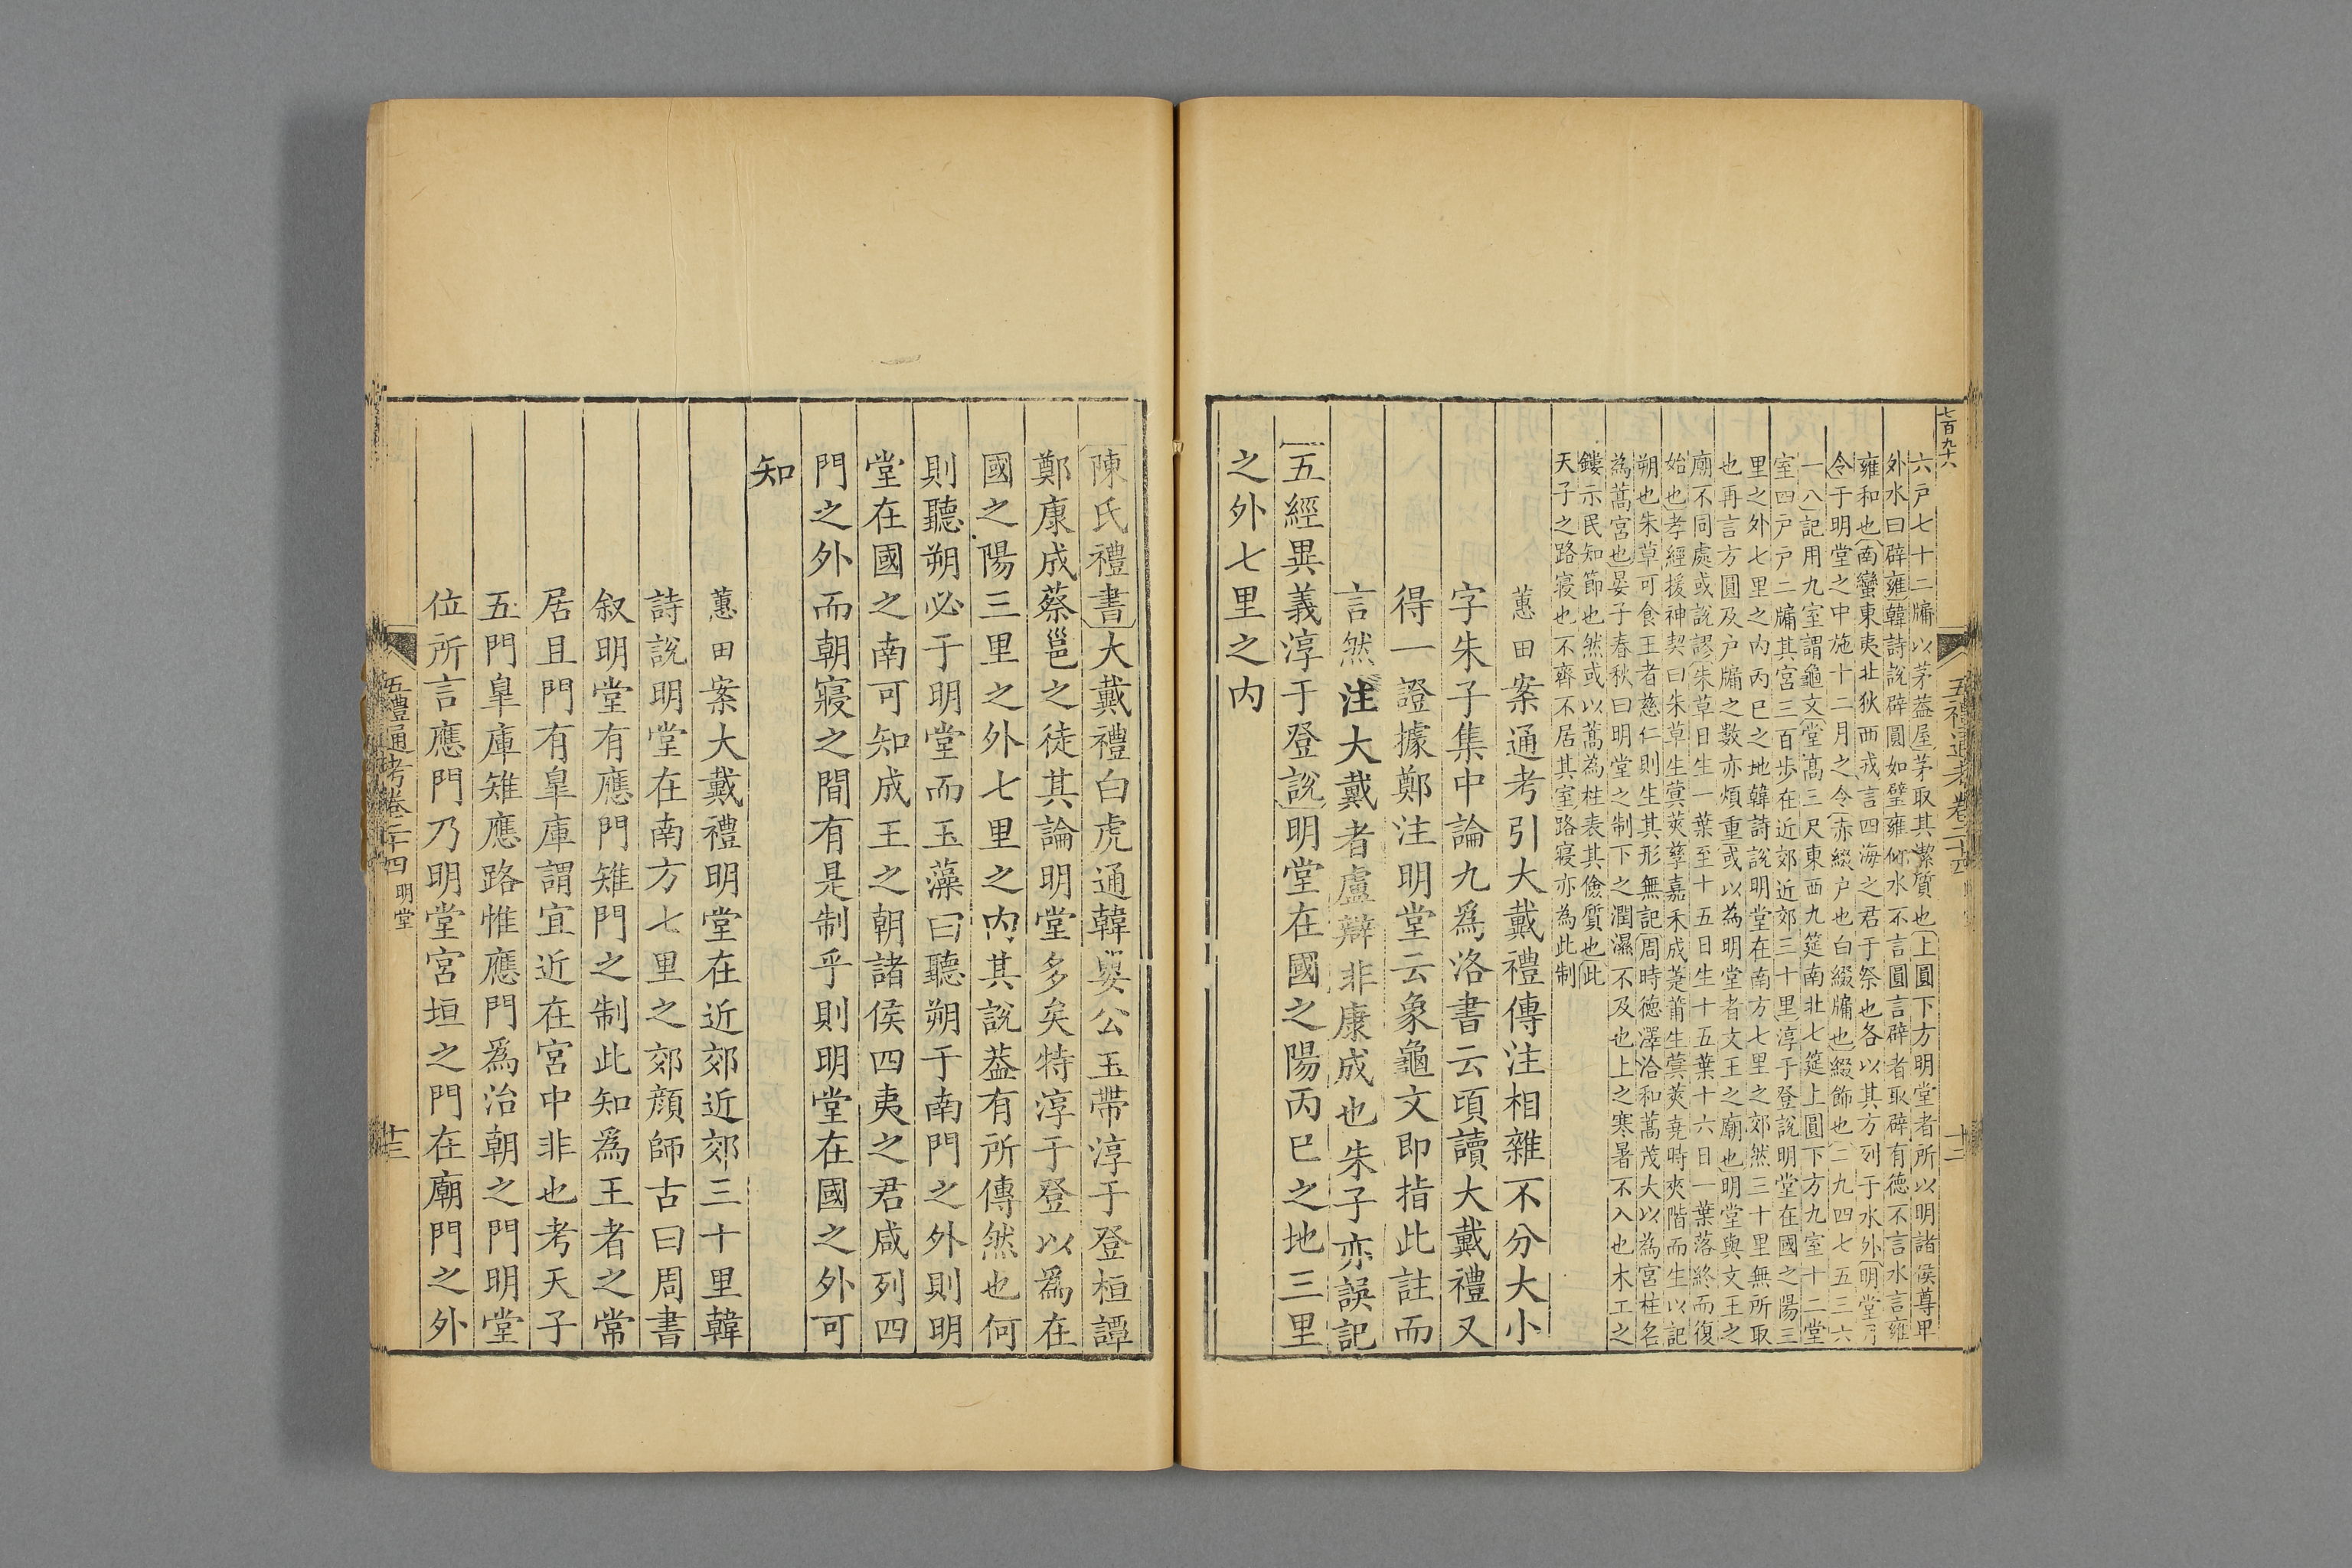 七百九十六
五禮通考卷二十四
十二
六戸七十二牖以茅葢屋茅取其潔質也上圓下方明堂者所以明諸侯尊卑
外水曰辟雍韓詩說辟圓如璧雍㕁水不言圓言辟者取辟有德不言水言雍
雍和也南蠻東夷北狄西戎言四海之君于祭也各以其方列于水外明堂月
令于明堂之中施十二月之令赤綴户也白綴牖也綴飾也二九四七五三六
一八記用九室謂龜文堂高三尺東西九筵南北七筵上圓下方九室十二堂
室四戸戸二牖其宮三百步在近郊近郊三十里淳于登說明堂在國之陽三
里之外七里之內丙巳之地韓詩說明堂在南方七里之郊然三十里無所取
也再言方圓及户牖之數亦煩重或以為明堂者文王之廟也明堂與文王之
廟不同處或說謬朱草日生一葉至十五日生十五葉十六日一葉落終而復
始也孝經援神契曰朱草生蓂莢孳嘉禾成萐莆生蓂莢堯時夾階而生以記
朔也朱草可食王者慈仁則生其形無記周時德澤洽和蒿茂大以為宮柱名
為蒿宮也晏子春秋曰明堂之制下之潤濕不及也上之寒暑不入也木工之
鏤示民知節也然或以蒿為柱表其儉質也此
天子之路寢也不齊不居其室路寢亦為此制
蕙田案通考引大戴禮傳注相雜不分大小
字朱子集中論九爲洛書云頃讀大戴禮又
得一證據鄭注明堂云象龜文即指此註而
言然注大戴者盧辯非康成也朱子亦誤記
五經異義淳于登說明堂在國之陽丙巳之地三里
之外七里之內
陳氏禮書大戴禮白虎通韓嬰公玉帶淳于登桓譚
鄭康成蔡邕之徒其論明堂多矣特淳于登以爲在
國之陽三里之外七里之內其說葢有所傳然也何
則聽朔必于明堂而玉藻曰聽朔于南門之外則明
堂在國之南可知成王之朝諸侯四夷之君咸列四
門之外而朝寢之間有是制乎則明堂在國之外可
知
蕙田案大戴禮明堂在近郊近郊三十里韓
詩說明堂在南方七里之郊顔師古曰周書
叙明堂有應門雉門之制此知爲王者之常
居且門有臯庫謂宜近在宮中非也考天子
五門臯庫雉應路惟應門爲治朝之門明堂
位所言應門乃明堂宮垣之門在廟門之外
五禮通考卷二十四 明堂
十三